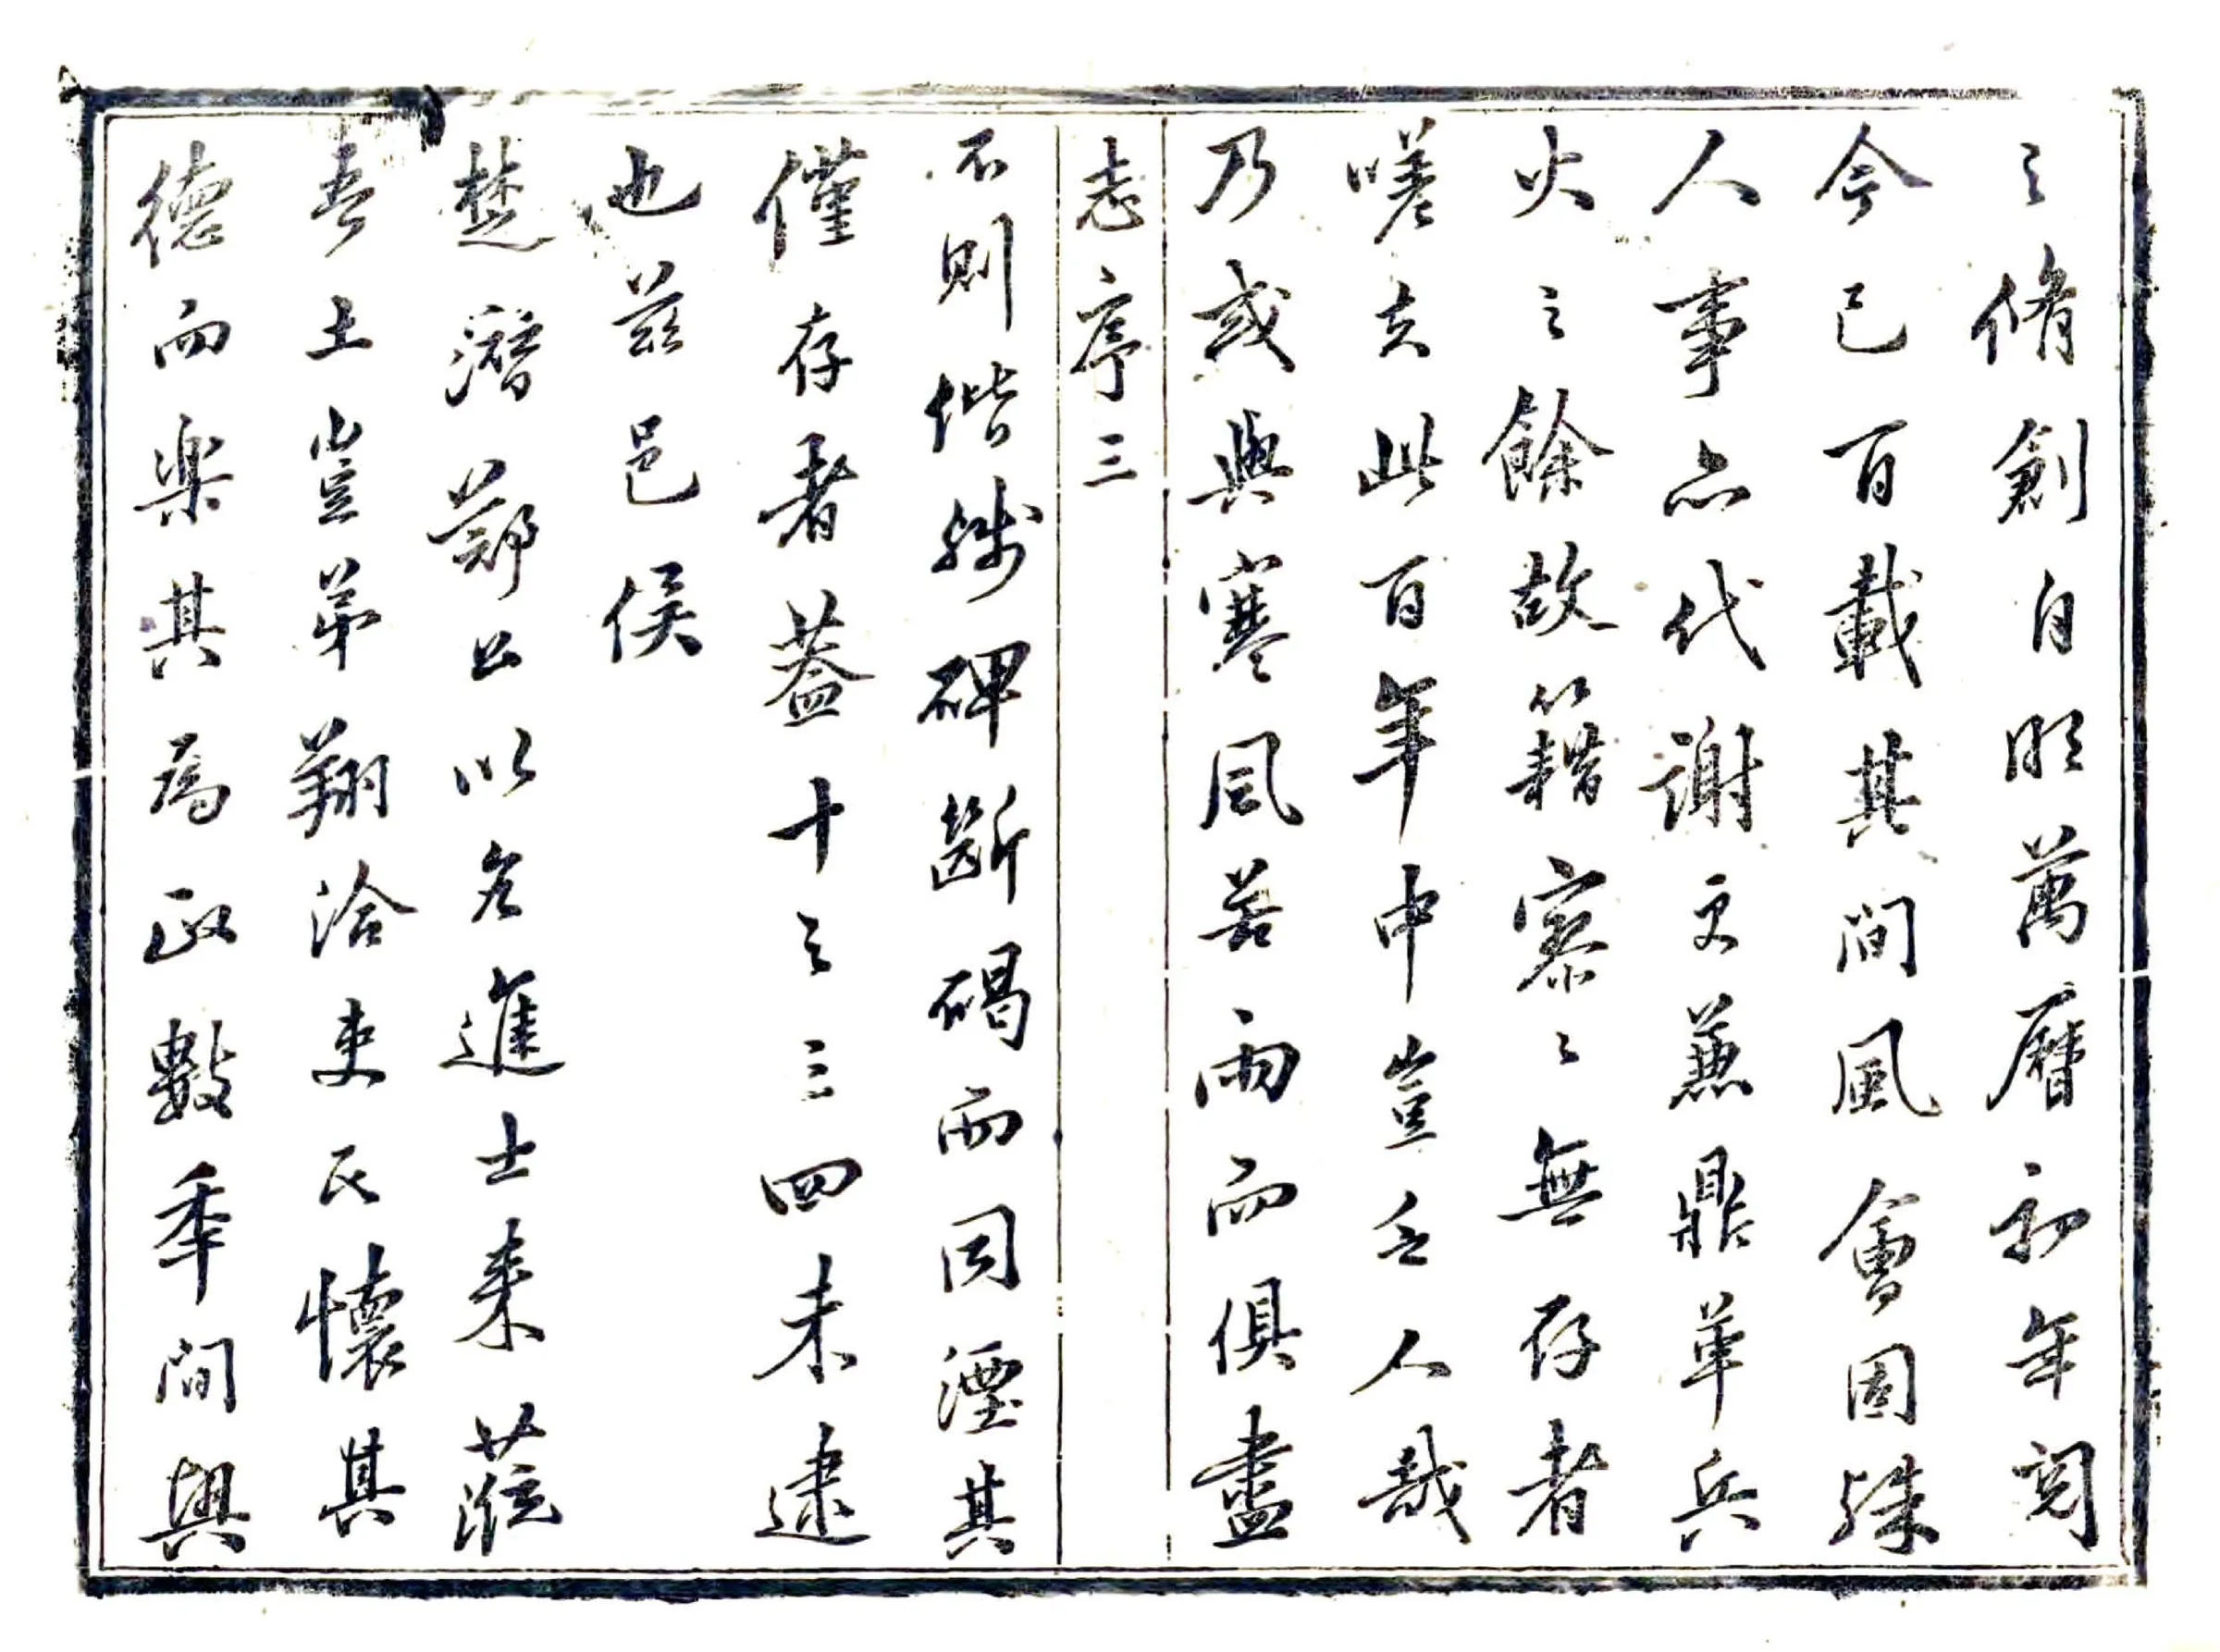 之脩創自明萬曆初年閱
今已百載其間風會固殊
人事亦代謝更兼鼎革兵
火之餘故籍寥〻無存者
嗟夫此百年中豈乏人哉
乃或與寒風苦雨而俱盡
志序三
不則偕殘碑斷碣而同湮其
僅存者蓋十之三四未逮
也兹邑侯
楚潛鄭公以名進士来蒞
吾土豈弟翔洽吏民懷其
德而樂其為政數季間與